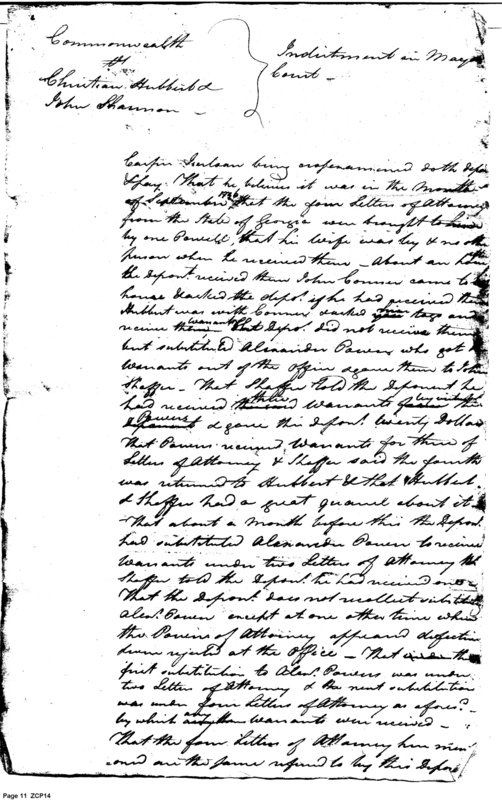 Commonwealth
vs
Christian Hubbert &
John Shannon —
Indictment in May
Court —
being cross examined doth depose
& say That he believes it was in the Month
of September that the four Letters of Attorney
from the State of Georgia were brought to him
by one Powell, that his Wife was by & no other
person when he received them — About an hour
the Depont. received them John Conner came to
house & asked the depot. if he had received them
Hubbert was with Conner & asked to go and
receive Warrants Depot. did not receive them
but substituted Alexander Powers who got
Warrants out of the Office & gave them to John
Shaffer — That Shaffer told the Deponent he
had received three Warrants
Powers & gave this Depont. twenty Dollars
That Powers received Warrants for three of
Letters of Attorney & Shaffer said the fourth
was returned to Hubbert & that Hubbert
& Shaffer had a great quarrel about it
That about a Month before this the Depont.
had substituted Alexander Powers to receive
Warrants under two Letters of Attorney
Shaffer told the Depont. he had received one
That the Depont. does not recollect
Alexr. Powers except at one other time when
the Powers of Attorney appeared defective
& were rejected at the Office — That the
first substitution to Alexr. Powers was under
two Letters of Attorney & the next substitution
was under four Letters of Attorney as afores. —
by which Warrants were received —
That the four Letters of Attorney here men
oned are the same referred to by this Depont
Page 11 ZCP14